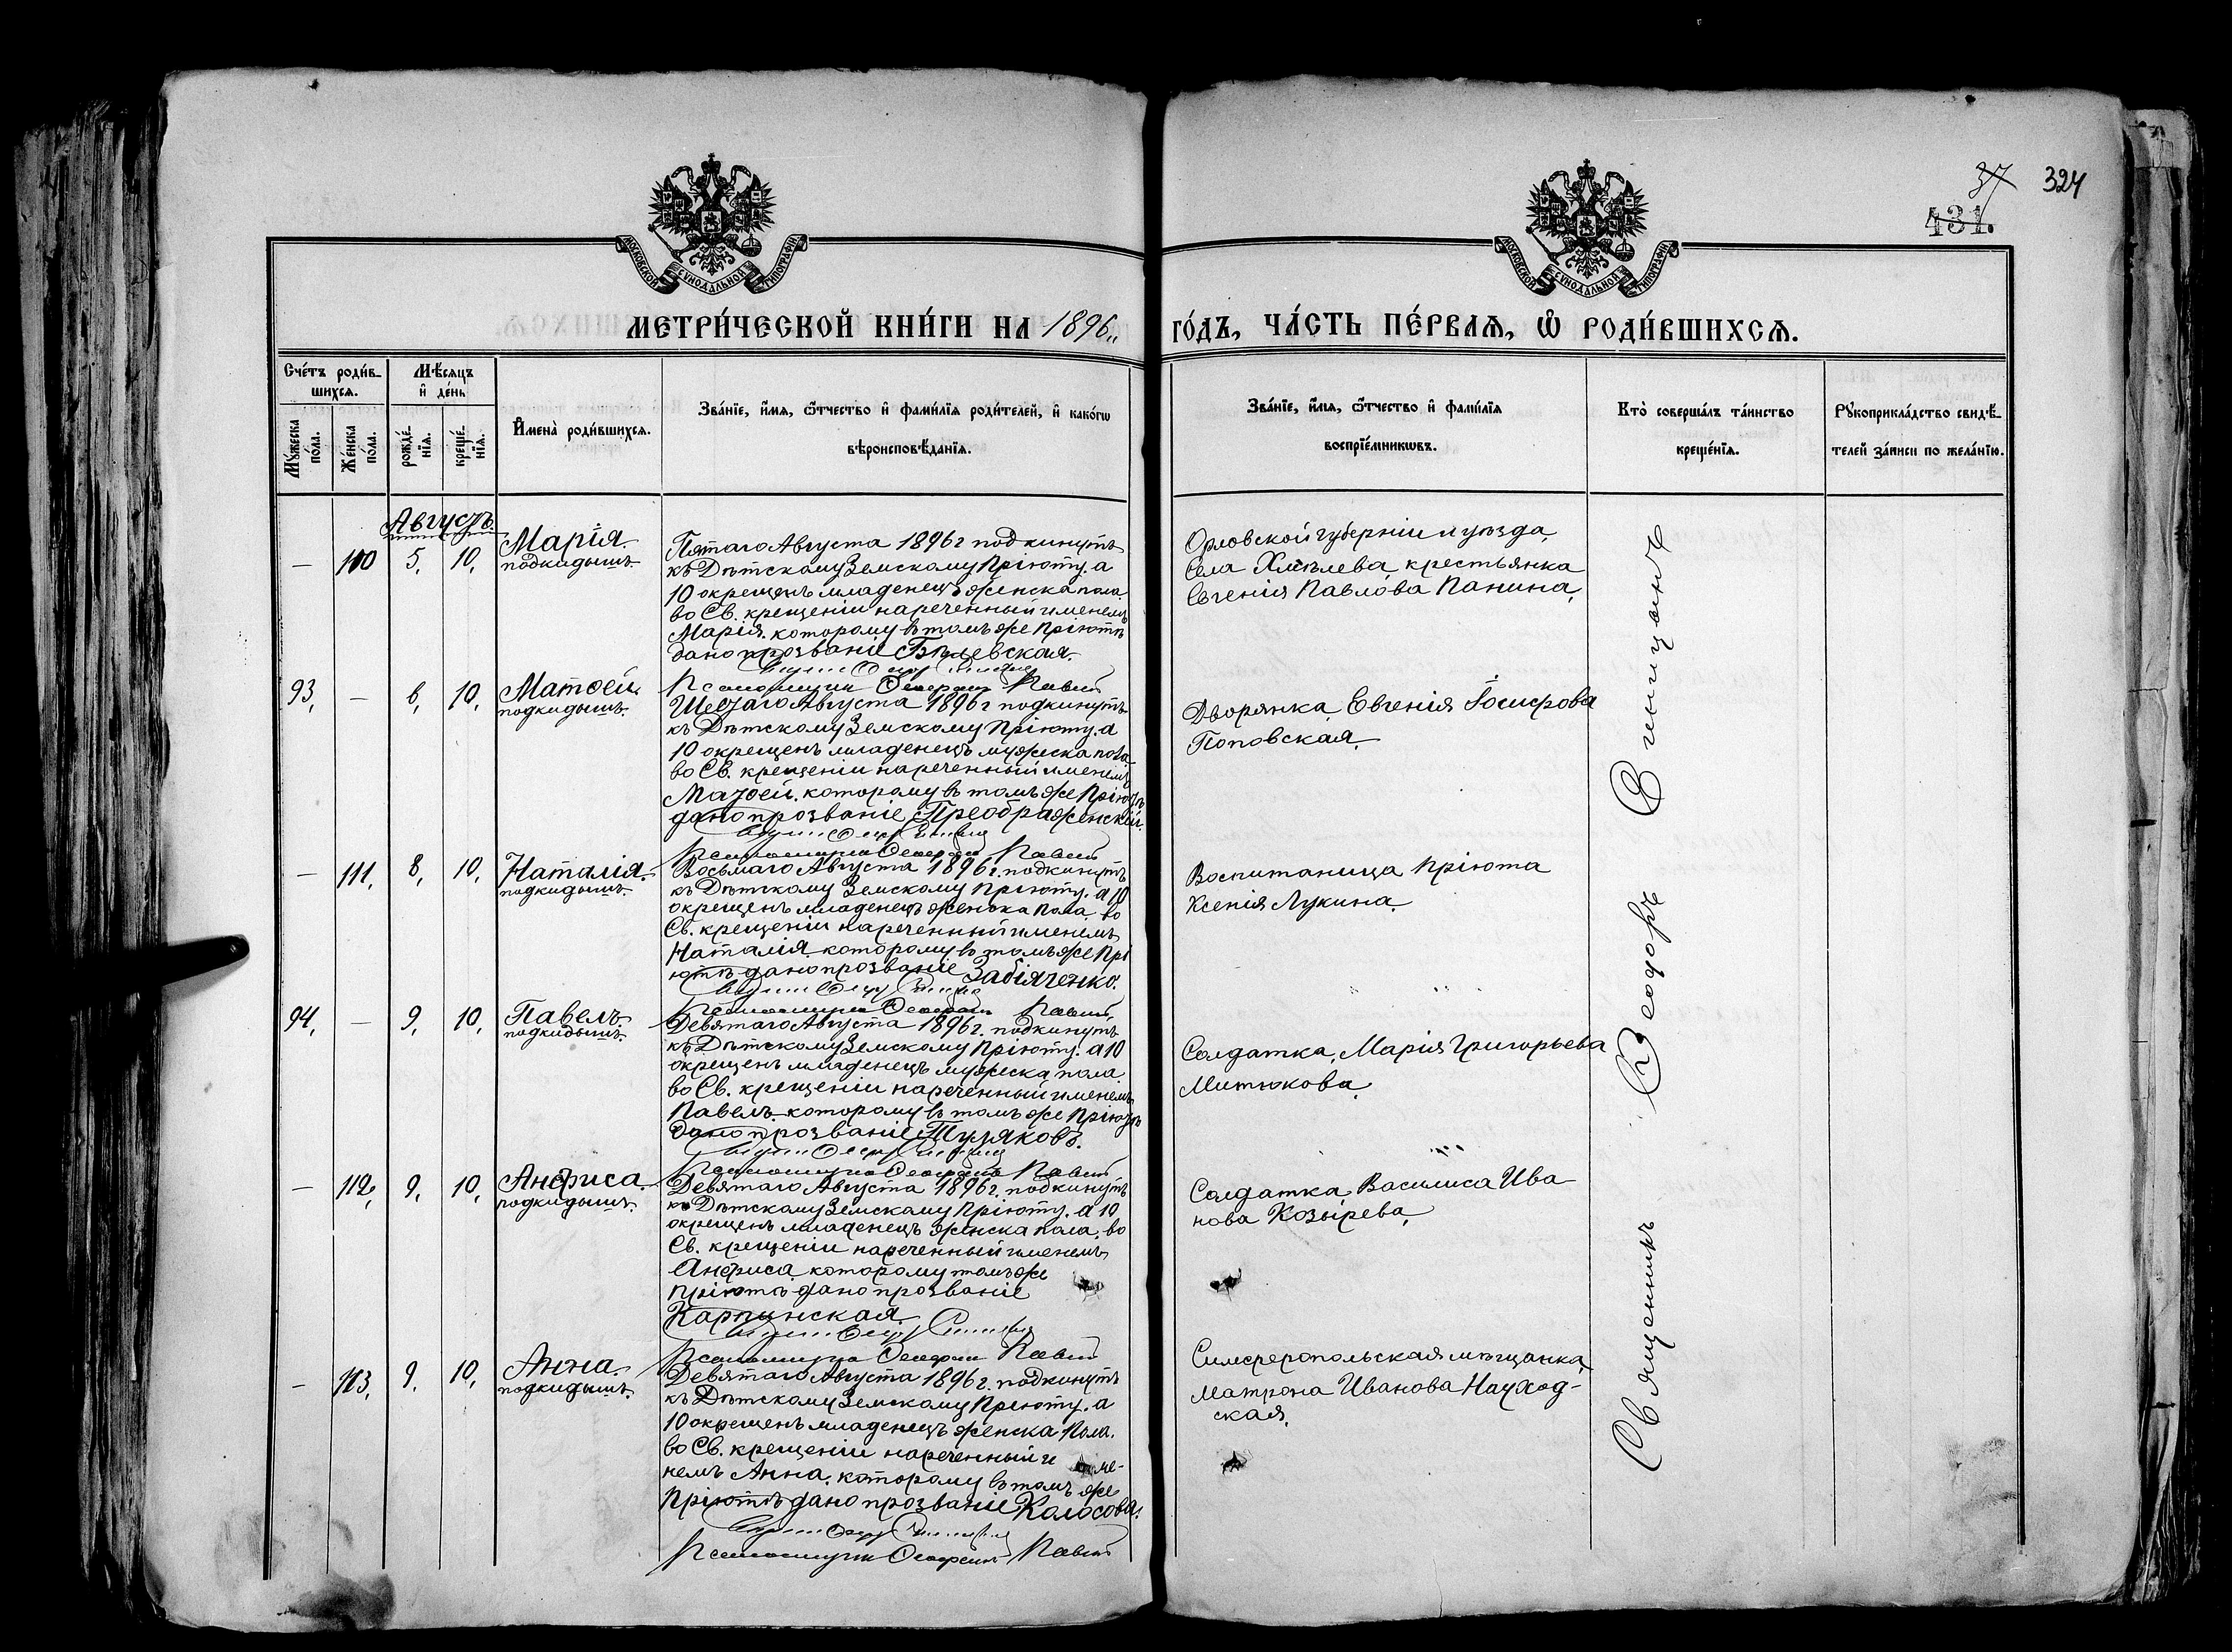 37 324
431.
МОСКОВСКОЙ СУНОДАЛЬНОЙ ТИПОГРАФІИ
МОСКОВСКОЙ СУНОДАЛЬНОЙ ТИПОГРАФІИ
МЕТРИ́ЧЕСКОЙ КНИ́ГИ НА 1896 ГО́ДЪ, ЧА́СТЬ ПЕ́РВАѦ, Ѡ҆ РОДИ́ВШИХСѦ.
Сче́тъ роди́в-
шихсѧ.
Мꙋ́жеска по́ла.
Же́нска по́ла.
Мѣ́сѧцъ
и҆ де́нь
рожде́нїѧ.
креще́нїѧ.
И҆мена̀ роди́вшихсѧ.
Зва́нїе, и҆́мѧ, ѻ҆́тчество и҆ фами́лїѧ роди́телей, и҆ како́гѡ
вѣроисповѣ́данїѧ.
Зва́нїе, и҆́мѧ, ѻ҆́тчество и҆ фами́лїѧ
воспрїе́мникѡвъ.
Кто̀ соверша́лъ та́инство
креще́нїѧ.
Рꙋкоприкла́дство свидѣ́-
телей за́писи по жела́нїю.
Августъ.
— 110 5. 10. Марія.
подкидышъ.
Пятаго Августа 1896 г подкинутъ
къ Дѣтскому Земскому Пріюту. а
10 окрещенъ младенецъ женска пола
во Св. крещеніи нареченный именемъ
Марія. которому въ томъ же Пріютѣ
дано прозваніе Бѣлевская.
Псаломщикъ Павел
Орловской губерніи и уѣзда
села Хмѣлева крестьянка
Евгенія Павлова Панина.
93. — 6. 10. Матѳей.
подкидышъ.
Шестаго Августа 1896 г подкинутъ
къ Дѣтскому Земскому Пріюту. а
10 окрещенъ младенецъ мужеска пола
во Св. крещеніи нареченный именемъ
Матѳей. которому въ томъ же Пріютѣ
дано прозваніе Преображенскій.
Псаломщикъ Павел
Дворянка Евгенія
Поповская.
— 111. 8. 10. Наталія.
подкидышъ.
Восьмаго Августа 1896 г. подкинутъ
къ Дѣтскому Земскому Пріюту. а 10
окрещенъ младенецъ женска пола. во
Св. крещеніи нареченный именемъ
Наталія. которому въ томъ же Прі
ютѣ дано прозваніе Забіяченко.
Псаломщикъ Павел
Воспитаница Пріюта
Ксенія Лукина.
94. — 9. 10. Павелъ.
подкидышъ.
Девятаго Августа 1896 г. подкинутъ
къ Дѣтскому Земскому Пріюту. а 10
окрещенъ младенецъ мужеска пола
во Св. крещеніи нареченный именемъ
Павелъ. которому въ томъ же Пріютѣ
дано прозваніе Тузяковъ.
Псаломщикъ Павел
Солдатка, Марія Григорьева
Митюкова.
— 112. 9. 10. Анфиса.
подкидышъ.
Девятаго Августа 1896 г. подкинутъ
къ Дѣтскому Земскому Пріюту. а 10
окрещенъ младенецъ женска пола. во
Св. крещеніи нареченный именемъ
Анфиса. которому томъ же
пріютѣ дано прозваніе
Карпинская.
Псаломщикъ Павел
Солдатка Василиса Ива-
нова Козырева.
— 113. 9. 10. Анна.
подкидышъ.
Девятаго Августа 1896 г. подкинутъ
къ Дѣтскому Земскому Пріюту. а
10 окрещенъ младенецъ женска пола.
во Св. крещеніи нареченный име-
немъ Анна. которому въ томъ же
Пріютѣ дано прозваніе Колосова.
Псаломщикъ Павел
Симферопольская мѣщанка
Матрона Иванова Наход-
ская.
Священникъ Ѳеодоръ